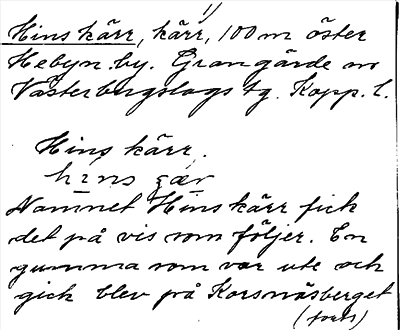 1)
Hins kärr, kärr, 100 m öster
Hebyn by. Grangärde sn
Västerbergslags tg. Kopp. l.
Hins kärr.
hins çær
Namnet Hins kärr fick
det på vis som följer. En
gumma som var ute och
gick blev på Korsnäsberget
(forts)